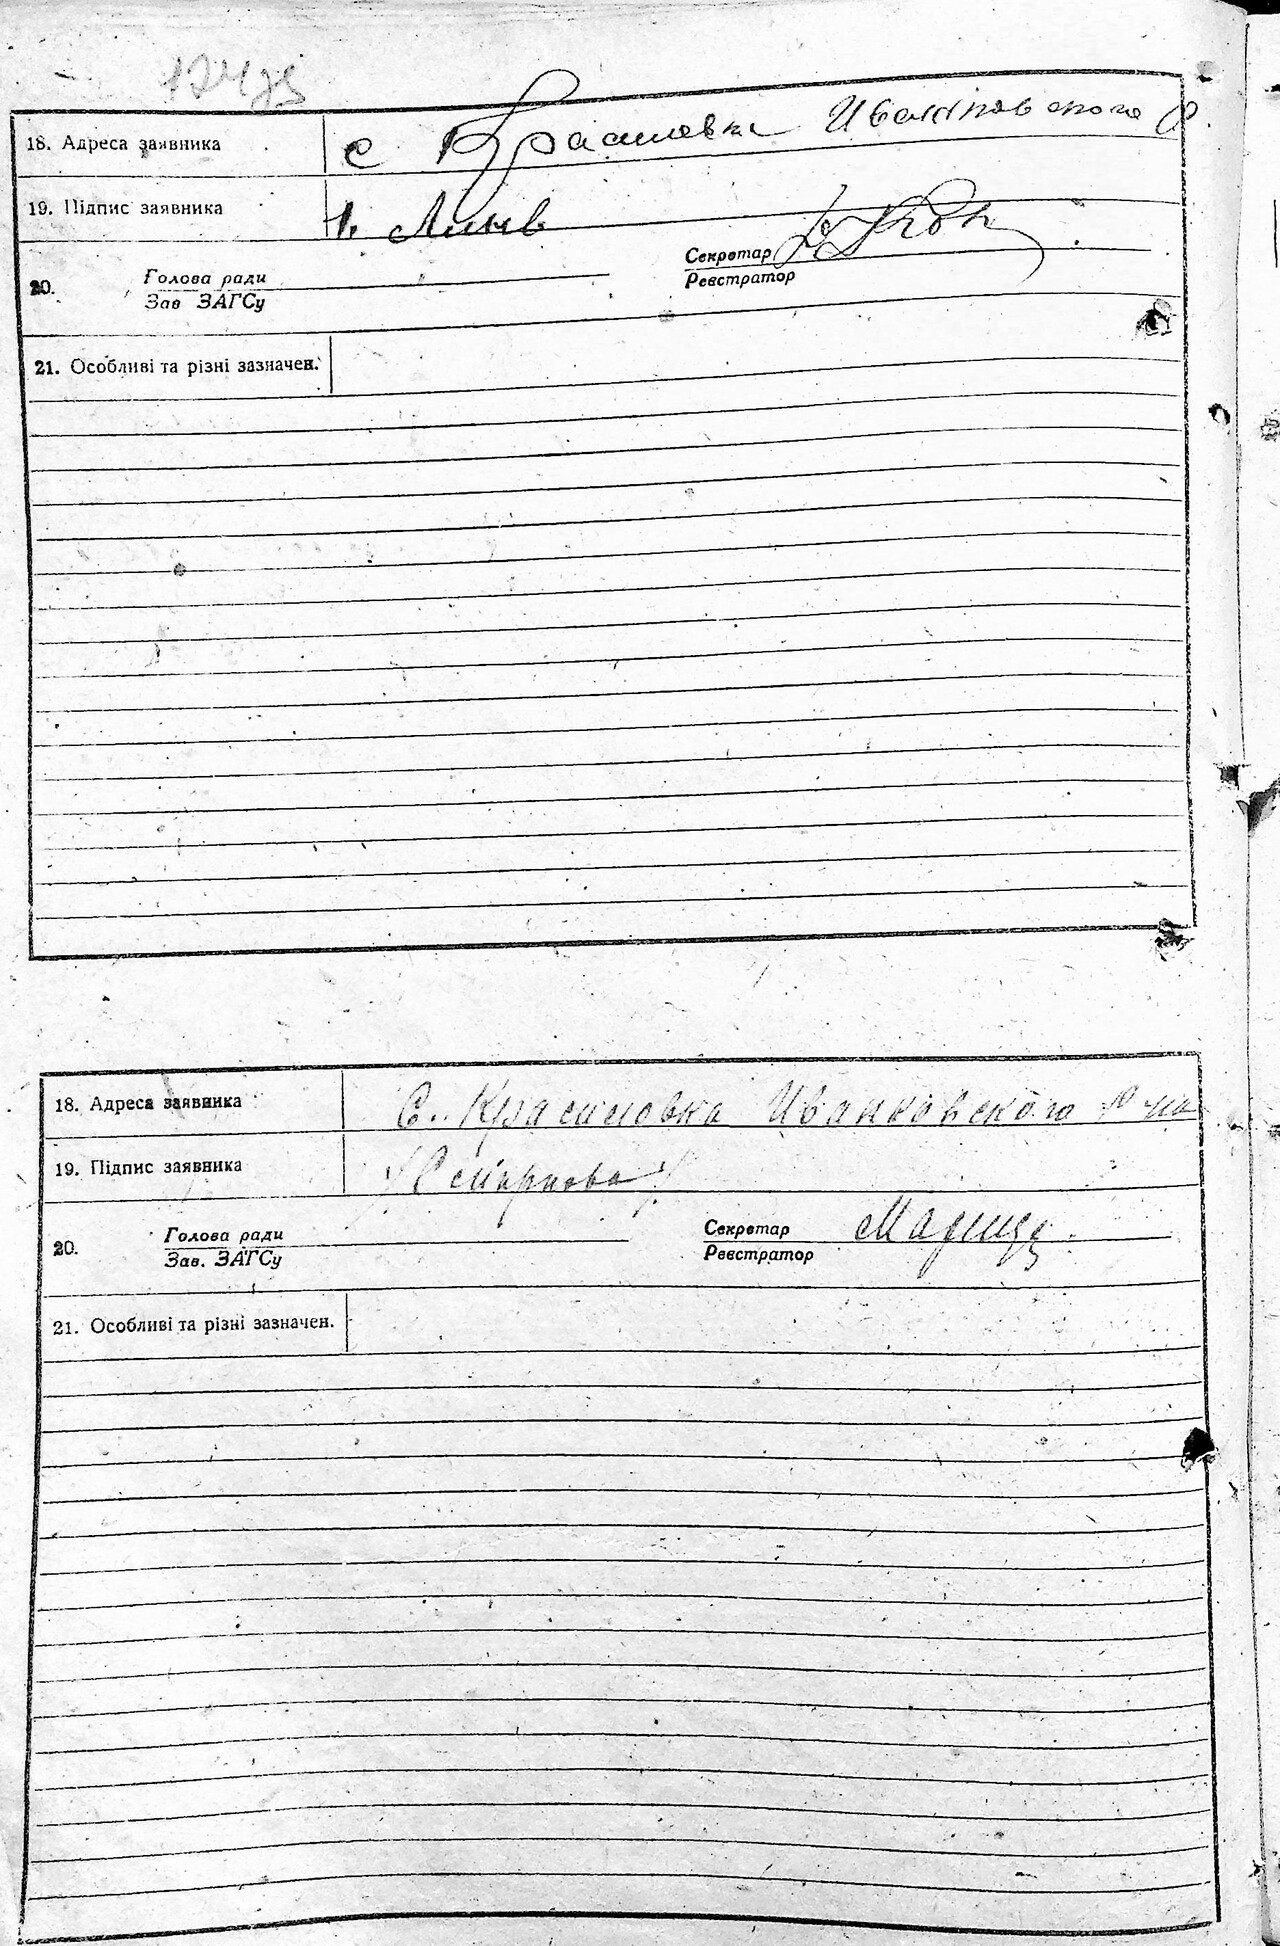 18. Адреса заявника с Красиловка Иванковского Р
19. Підпис заявника
20. Голова ради Секретар
Зав ЗАГСу Реєстратор
21. Особливі та різні зазначен.
18. Адреса заявника С. Красиловка Иванковского р-на
19. Підпис заявника /Смирнова/
20. Голова ради Секретар
Зав. ЗАГСу Реєстратор
21. Особливі та різні зазначен.